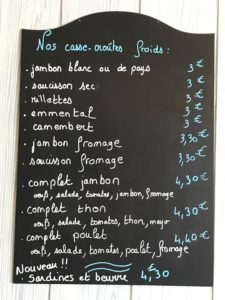 Nos casse-croûtes froids :
. jambon blanc ou de pays 3 €
. saucisson sec 3 €
. rillettes 3 €
. emmental 3 €
. camembert 3 €
. jambon fromage 3,30 €
. saucisson fromage 3,30 €
. complet jambon 4,30 €
oeufs, salade, tomates, jambon, fromage
. complet thon 4,30 €
oeufs, salade, tomates, thon, mayo
. complet poulet 4,40 €
oeufs, salade, tomates, poulet, fromage
Nouveau !!
. Sardines et beurre 4,30 €